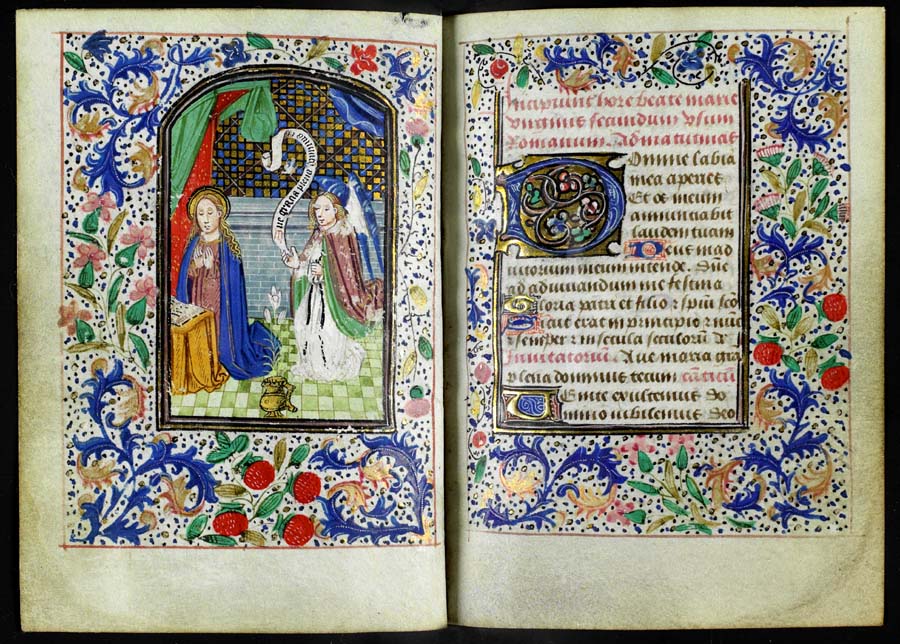 Aue gracia plena
Incipiunt hore beate marie
virginis secundum vsum
Romanum. Ad matutinas
Domine labia
mea aperies
Et os meum
annunciabit
laudem tuam
Deus in ad
iutorium meum intende. Dne
ad adiuuandum me festina
Gloria patri et filio z spiui sco
Sicut erat in principio z nuc
z semper z in secula seculoru
Inuitatoriu. Aue maria gra
plena dominus tecum
Venite exultemus do
mino iubilemus deo